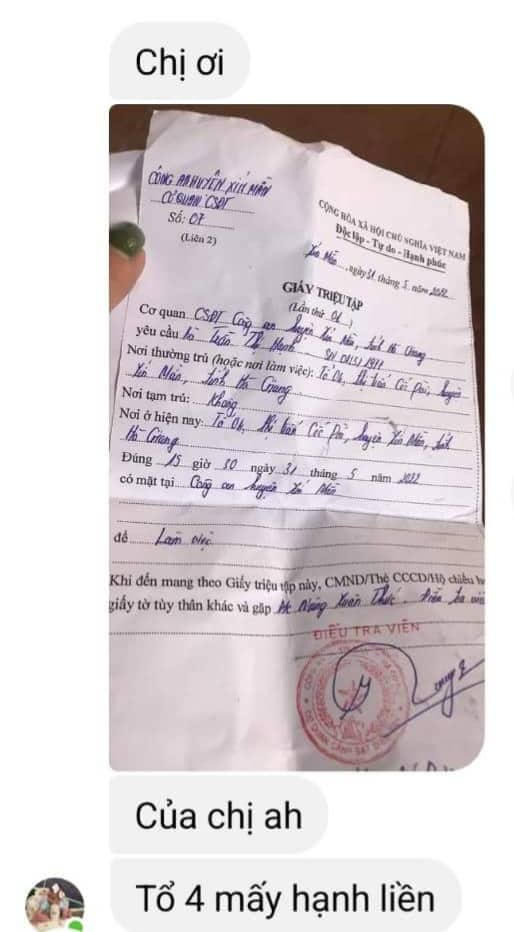 Chị ơi
CÔNG AN HUYỆN XÍN MẦN
CƠ QUAN CSĐT
Số: 07
(Liên 2)
CỘNG HÒA XÃ HỘI CHỦ NGHĨA VIỆT NAM
Độc lập - Tự do - Hạnh phúc
Xín Mần, ngày 31 tháng 5 năm 2022
GIẤY TRIỆU TẬP
(Lần thứ 01)
Cơ quan CSĐT Công an huyện Xín Mần, tỉnh Hà Giang
yêu cầu bà Trần Thị Hạnh
Nơi thường trú (hoặc nơi làm việc): Thị trấn Cốc Pài, huyện
Xín Mần, tỉnh Hà Giang
Nơi tạm trú: Không
Nơi ở hiện nay: Thị trấn Cốc Pài, huyện Xín Mần, tỉnh
Hà Giang
Đúng 15 giờ 30 ngày 31 tháng 5 năm 2022
có mặt tại Công an huyện Xín Mần
để Làm việc
Khi đến mang theo Giấy triệu tập này, CMND/Thẻ CCCD/Hộ chiếu
giấy tờ tùy thân khác và gặp Xuân Điều tra viên
ĐIỀU TRA VIÊN
Của chị ah
Tổ 4 mấy hạnh liền